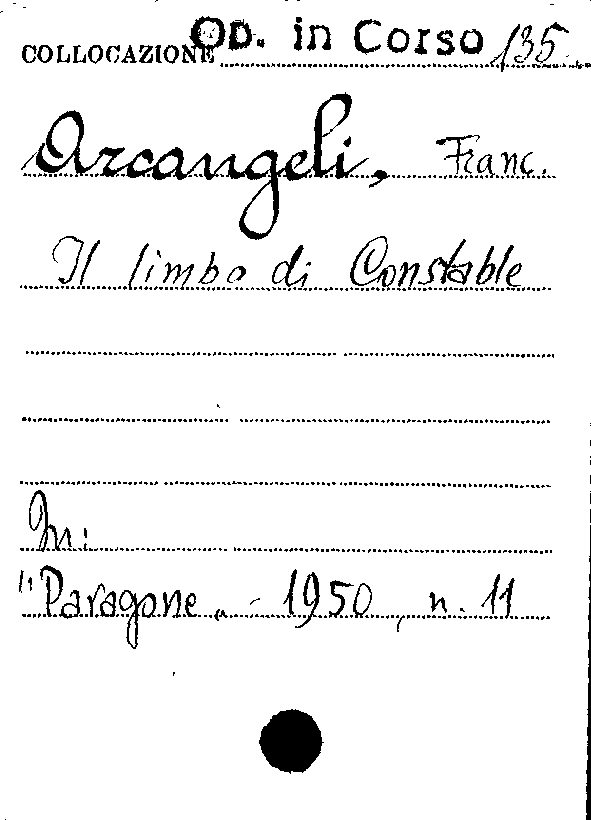 COLLOCAZIONE OD. in Corso 135
Arcangeli, Franc.
Il limbo di Constable
In:
"Paragone„ - 1950, n. 11